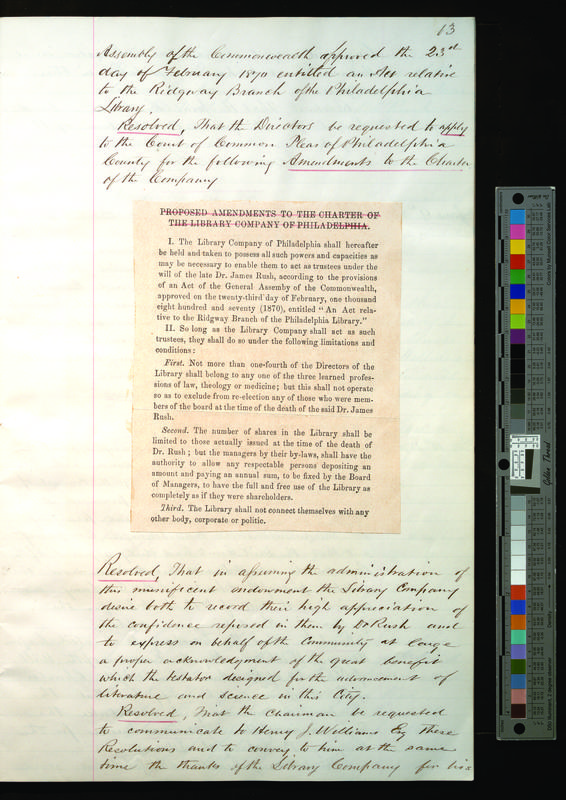 13
Assembly of the Commonwealth approved the 23rd
day of February 1870 entitled an Act relative
to the Ridgway Branch of the Philadelphia
Library.
Resolved, That the Directors be requested to apply
to the Court of Common Pleas of Philadelphia
County for the following Amendments to the Charter
of the Company
PROPOSED AMENDMENTS TO THE CHARTER OF
THE LIBRARY COMPANY OF PHILADELPHIA.
I. The Library Company of Philadelphia shall hereafter
be held and taken to possess all such powers and capacities as
may be necessary to enable them to act as trustees under the
will of the late Dr. James Rush, according to the provisions
of an Act of the General Assemby of the Commonwealth,
approved on the twenty-third day of February, one thousand
eight hundred and seventy (1870), entitled "An Act rela-
tive to the Ridgway Branch of the Philadelphia Library."
II. So long as the Library Company shall act as such
trustees, they shall do so under the following limitations and
conditions:
First. Not more than one-fourth of the Directors of the
Library shall belong to any one of the three learned profes-
sions of law, theology or medicine; but this shall not operate
so as to exclude from re-election any of those who were mem-
bers of the board at the time of the death of the said Dr. James
Rush.
Second. The number of shares in the Library shall be
limited to those actually issued at the time of the death of
Dr. Rush; but the managers by their by-laws, shall have the
authority to allow any respectable persons depositing an
amount and paying an annual sum, to be fixed by the Board
of Managers, to have the full and free use of the Library as
completely as if they were shareholders.
Third. The Library shall not connect themselves with any
other body, corporate or politic.
Resolved, That in assuming the administration of
this munificent endowment the Library Company
desire both to record their high appreciation of
the confidence reposed in them by Dr Rush and
to express on behalf of the Community at large
a proper acknowledgment of the great benefit
which the testator designed for the advancement of
literature and science in this City.
Resolved, That the Chairman be requested
to communicate to Henry J. Williams Esq these
Resolutions and to convey to him at the same
time the thanks of the Library Company for his